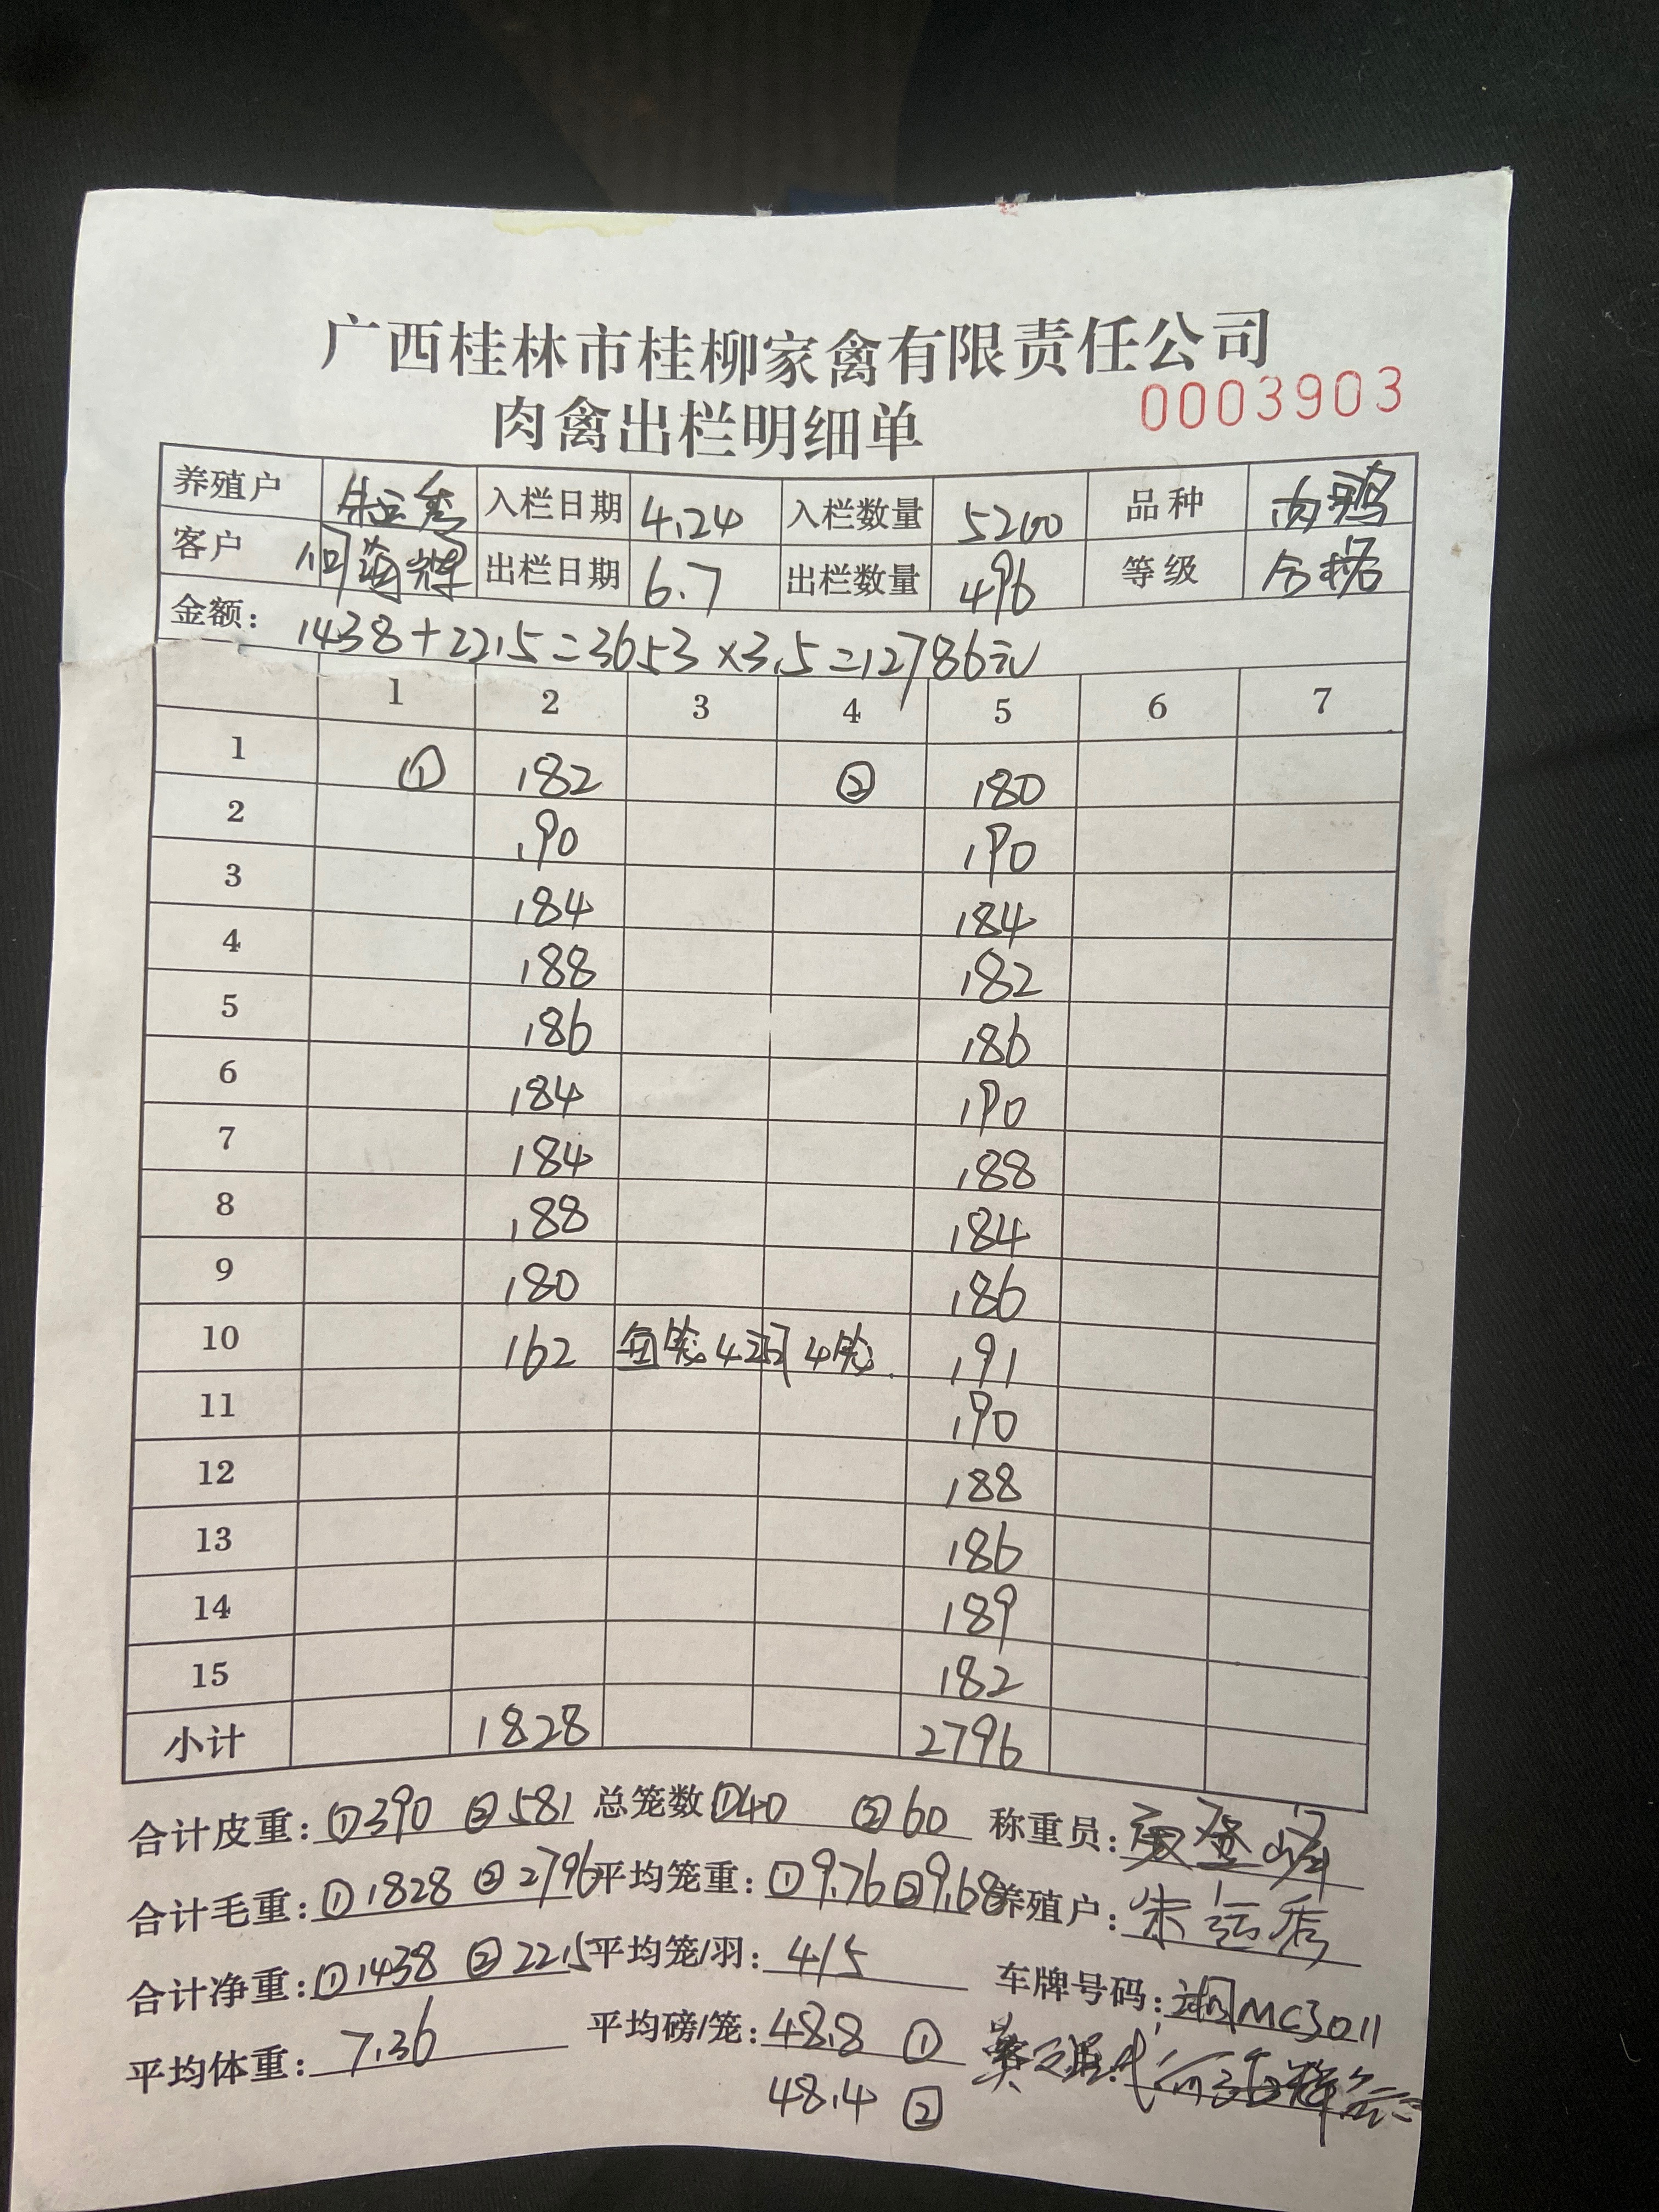 广西桂林市桂柳家禽有限责任公司
肉禽出栏明细单 0003903
养殖户 朱运秀 入栏日期 4.24 入栏数量 5200 品种 肉鸦
客户 何海辉 出栏日期 6.7 出栏数量 496 等级 合格
金额: 1438+2215=3653×3.5=12786元
1 2 3 4 5 6 7
1 ① 182 ② 180
2 190 190
3 184 184
4 188 182
5 186 186
6 184 190
7 184 188
8 188 184
9 180 186
10 162 每笼4羽4笼. 191
11 190
12 188
13 186
14 189
15 182
小计 1828 2796
合计皮重: ①390 ②581 总笼数 ①40 ②60 称重员:
合计毛重: ①1828 ②2796 平均笼重: ①9.76 ②9.68 养殖户: 朱运秀
合计净重: ①1438 ②2215 平均笼/羽: 4/5 车牌号码: 湘MC3011
平均体重: 7.36 平均磅/笼: 48.8 ①
48.4 ②